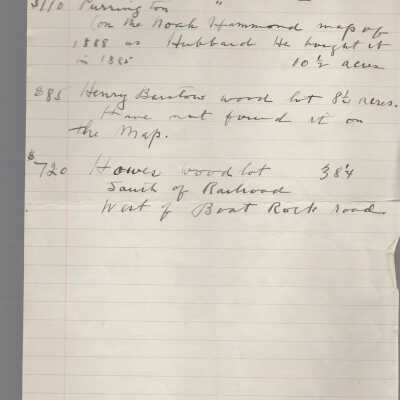 $110 Purrington "
(on the Noah Hammond map of
1888 as Hubbard He bought it
in 1895 10 1/2 acres
$85 Henry Barstow wood lot 8 1/2 acres.
Have not found it on
the Map.
$720 Howes wood lot 38 1/4
South of Railroad
West of Boat Rock road